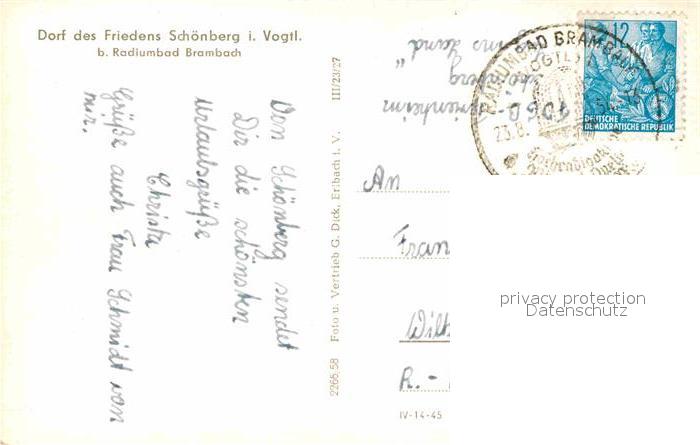 Dorf des Friedens Schönberg i. Vogtl.
b. Radiumbad Brambach
Von Schönberg sendet
Dir die schönsten
Urlaubsgrüße
Christa
Grüße auch Frau Schmidt von
mir.
2266.58 Foto u. Vertrieb G. Dick, Erlbach i. V. III/23/27
Schönberg
RADIUMBAD BRAMBACH
VOGTL
23.8.
12
DEUTSCHE
DEMOKRATISCHE REPUBLIK
An
Fran
R.-
IV-14-45
privacy protection
Datenschutz